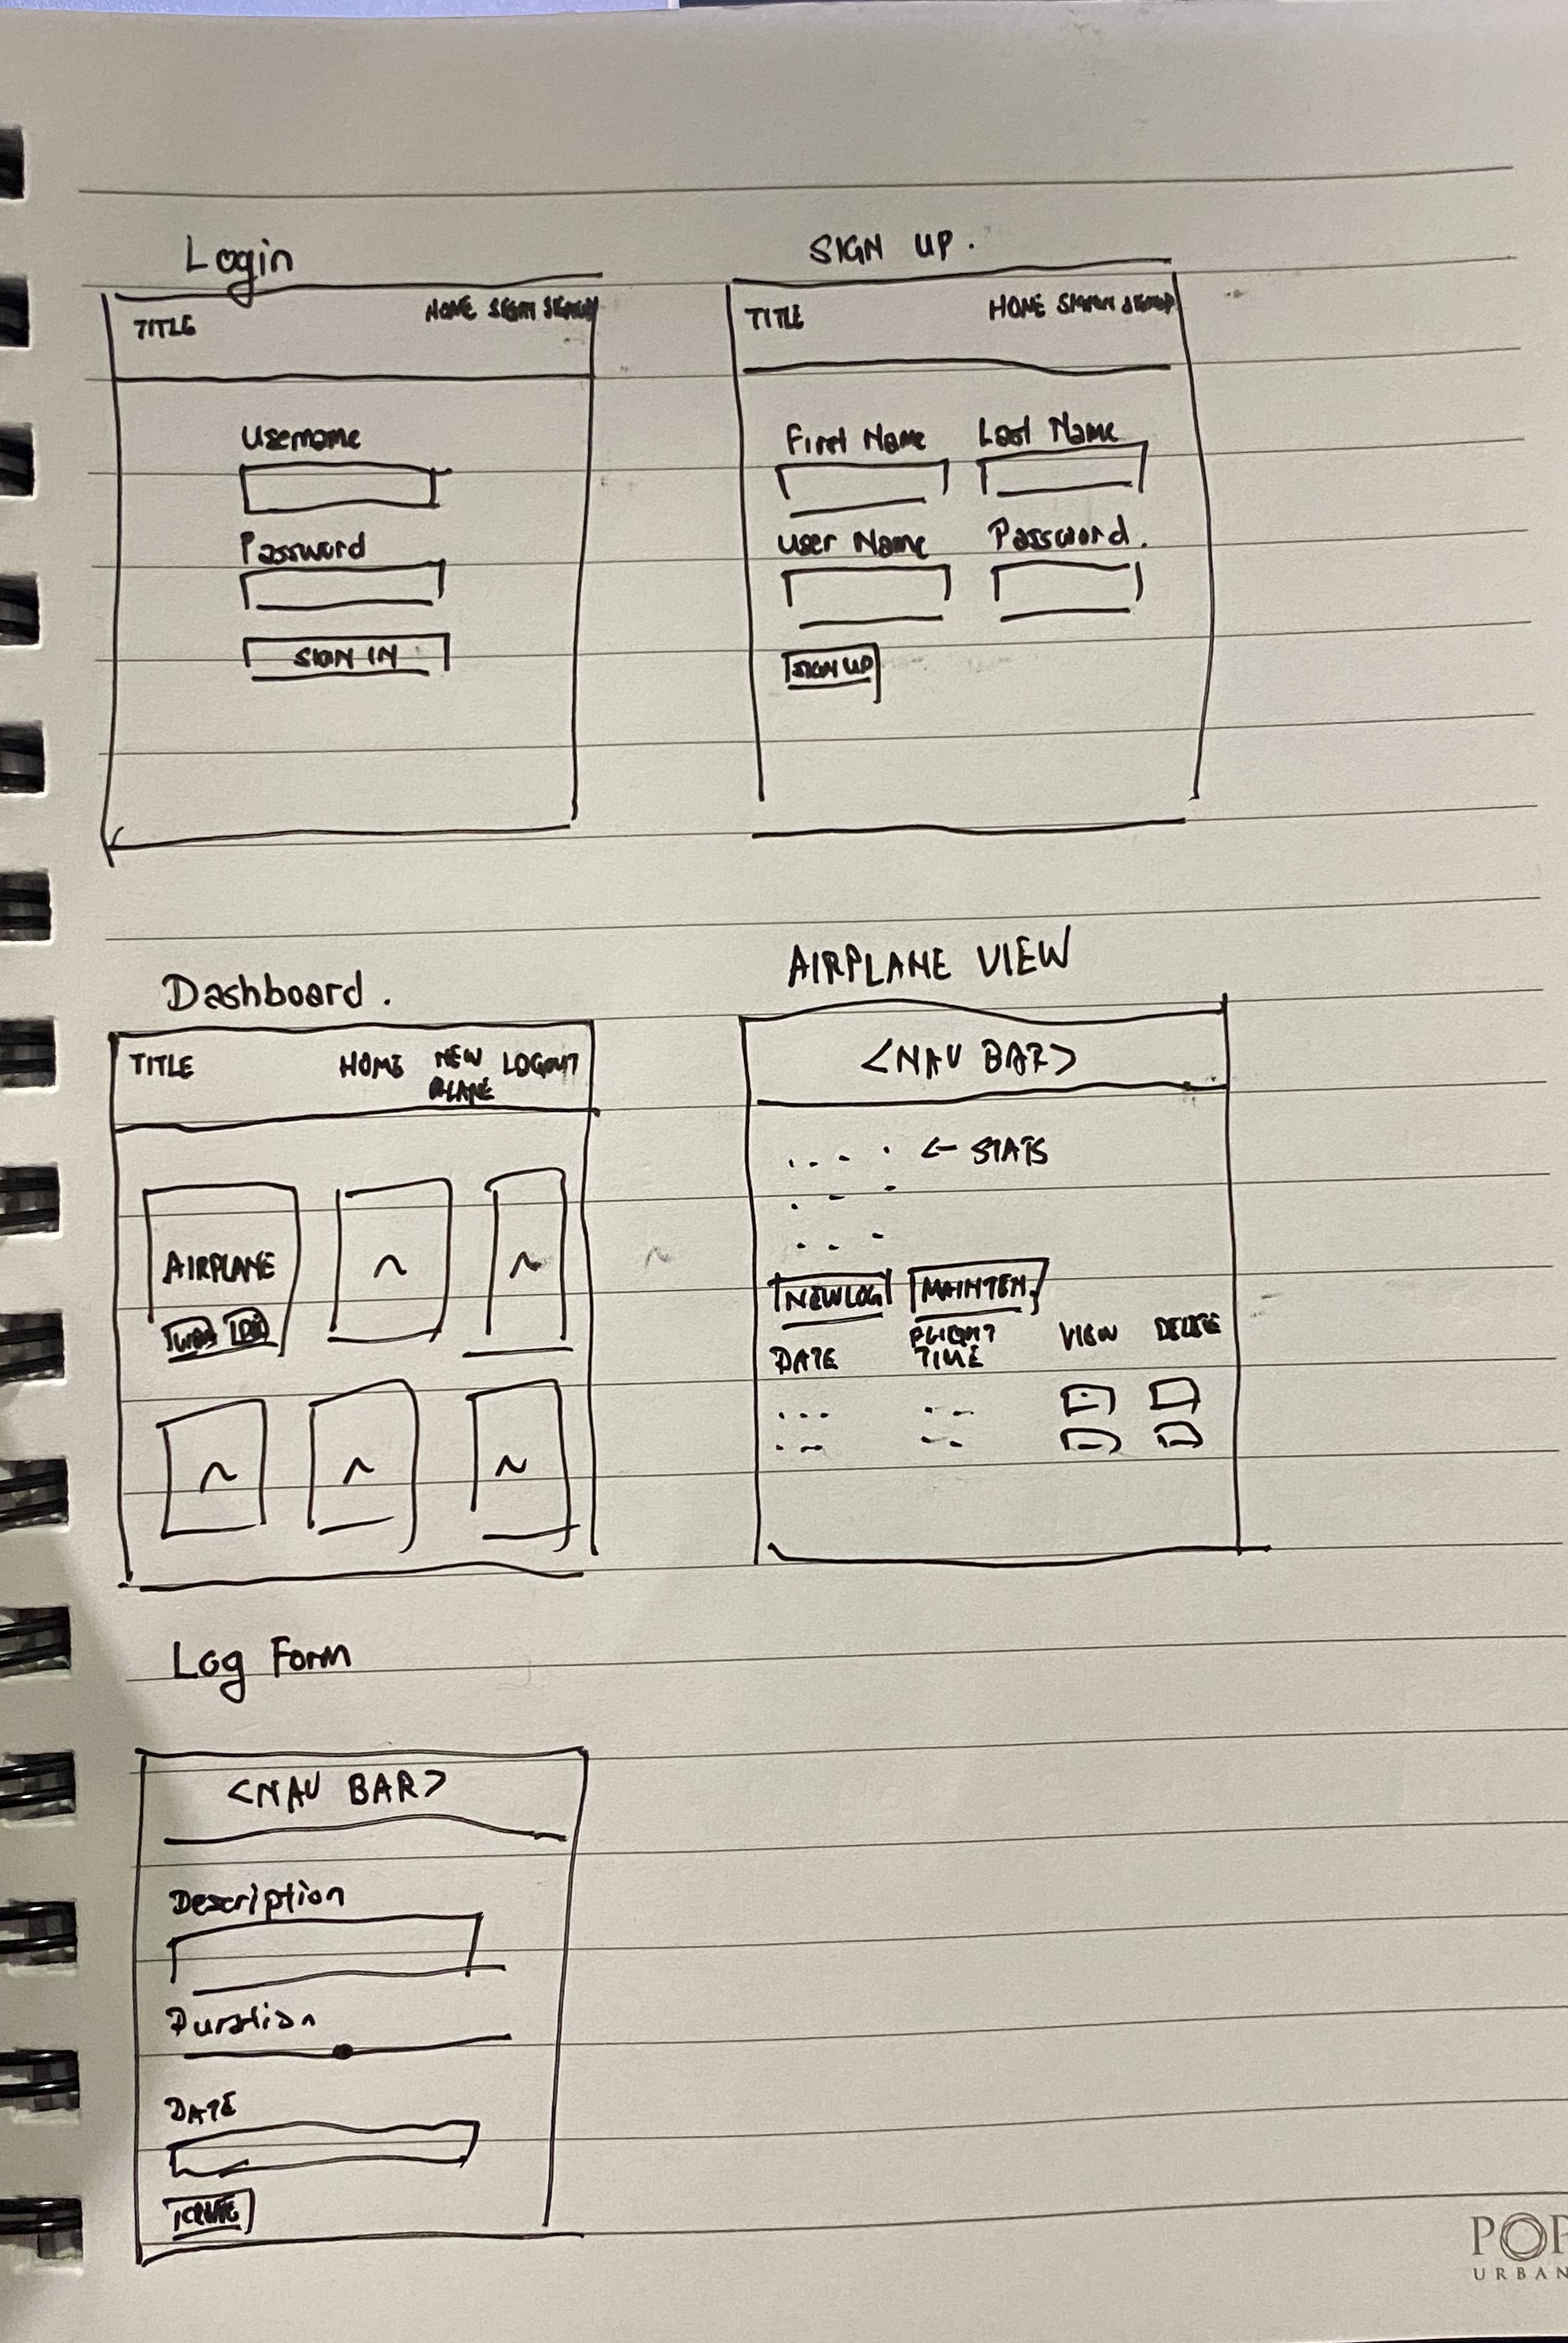 Login
TITLE HOME SIGNIN SIGNUP
Username
Password
SIGN IN
SIGN UP.
TITLE HOME SIGNIN SIGNUP
First Name Last Name
User Name Password.
SIGN UP
Dashboard.
TITLE HOME NEW PLANE LOGOUT
AIRPLANE
AIRPLANE VIEW
<NAV BAR>
← STATS
NEW LOG MAINTEN.
DATE FLIGHT TIME VIEW DELETE
Log Form
<NAV BAR>
Description
Duration
DATE
CREATE
POP
URBAN